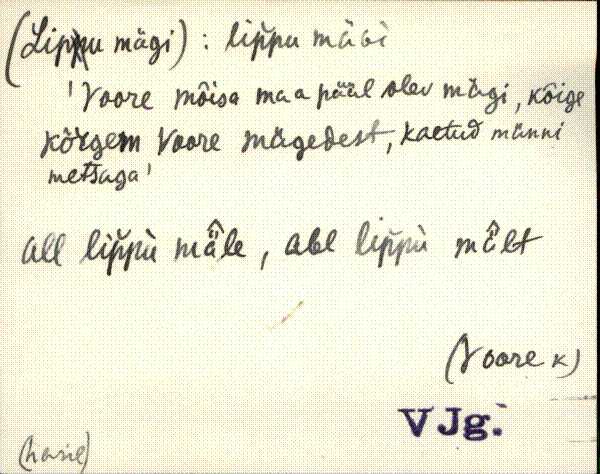 (Lippu mägi) : lip̆pu mäɢì
'Voore mõisa maa pääl olev mägi, kõige
kõrgem Voore mägedest, kaetud männi
metsaga'
all lip̆pù mä̂le, abl lip̆pù mä̂lt
(Voore k)
VJg.